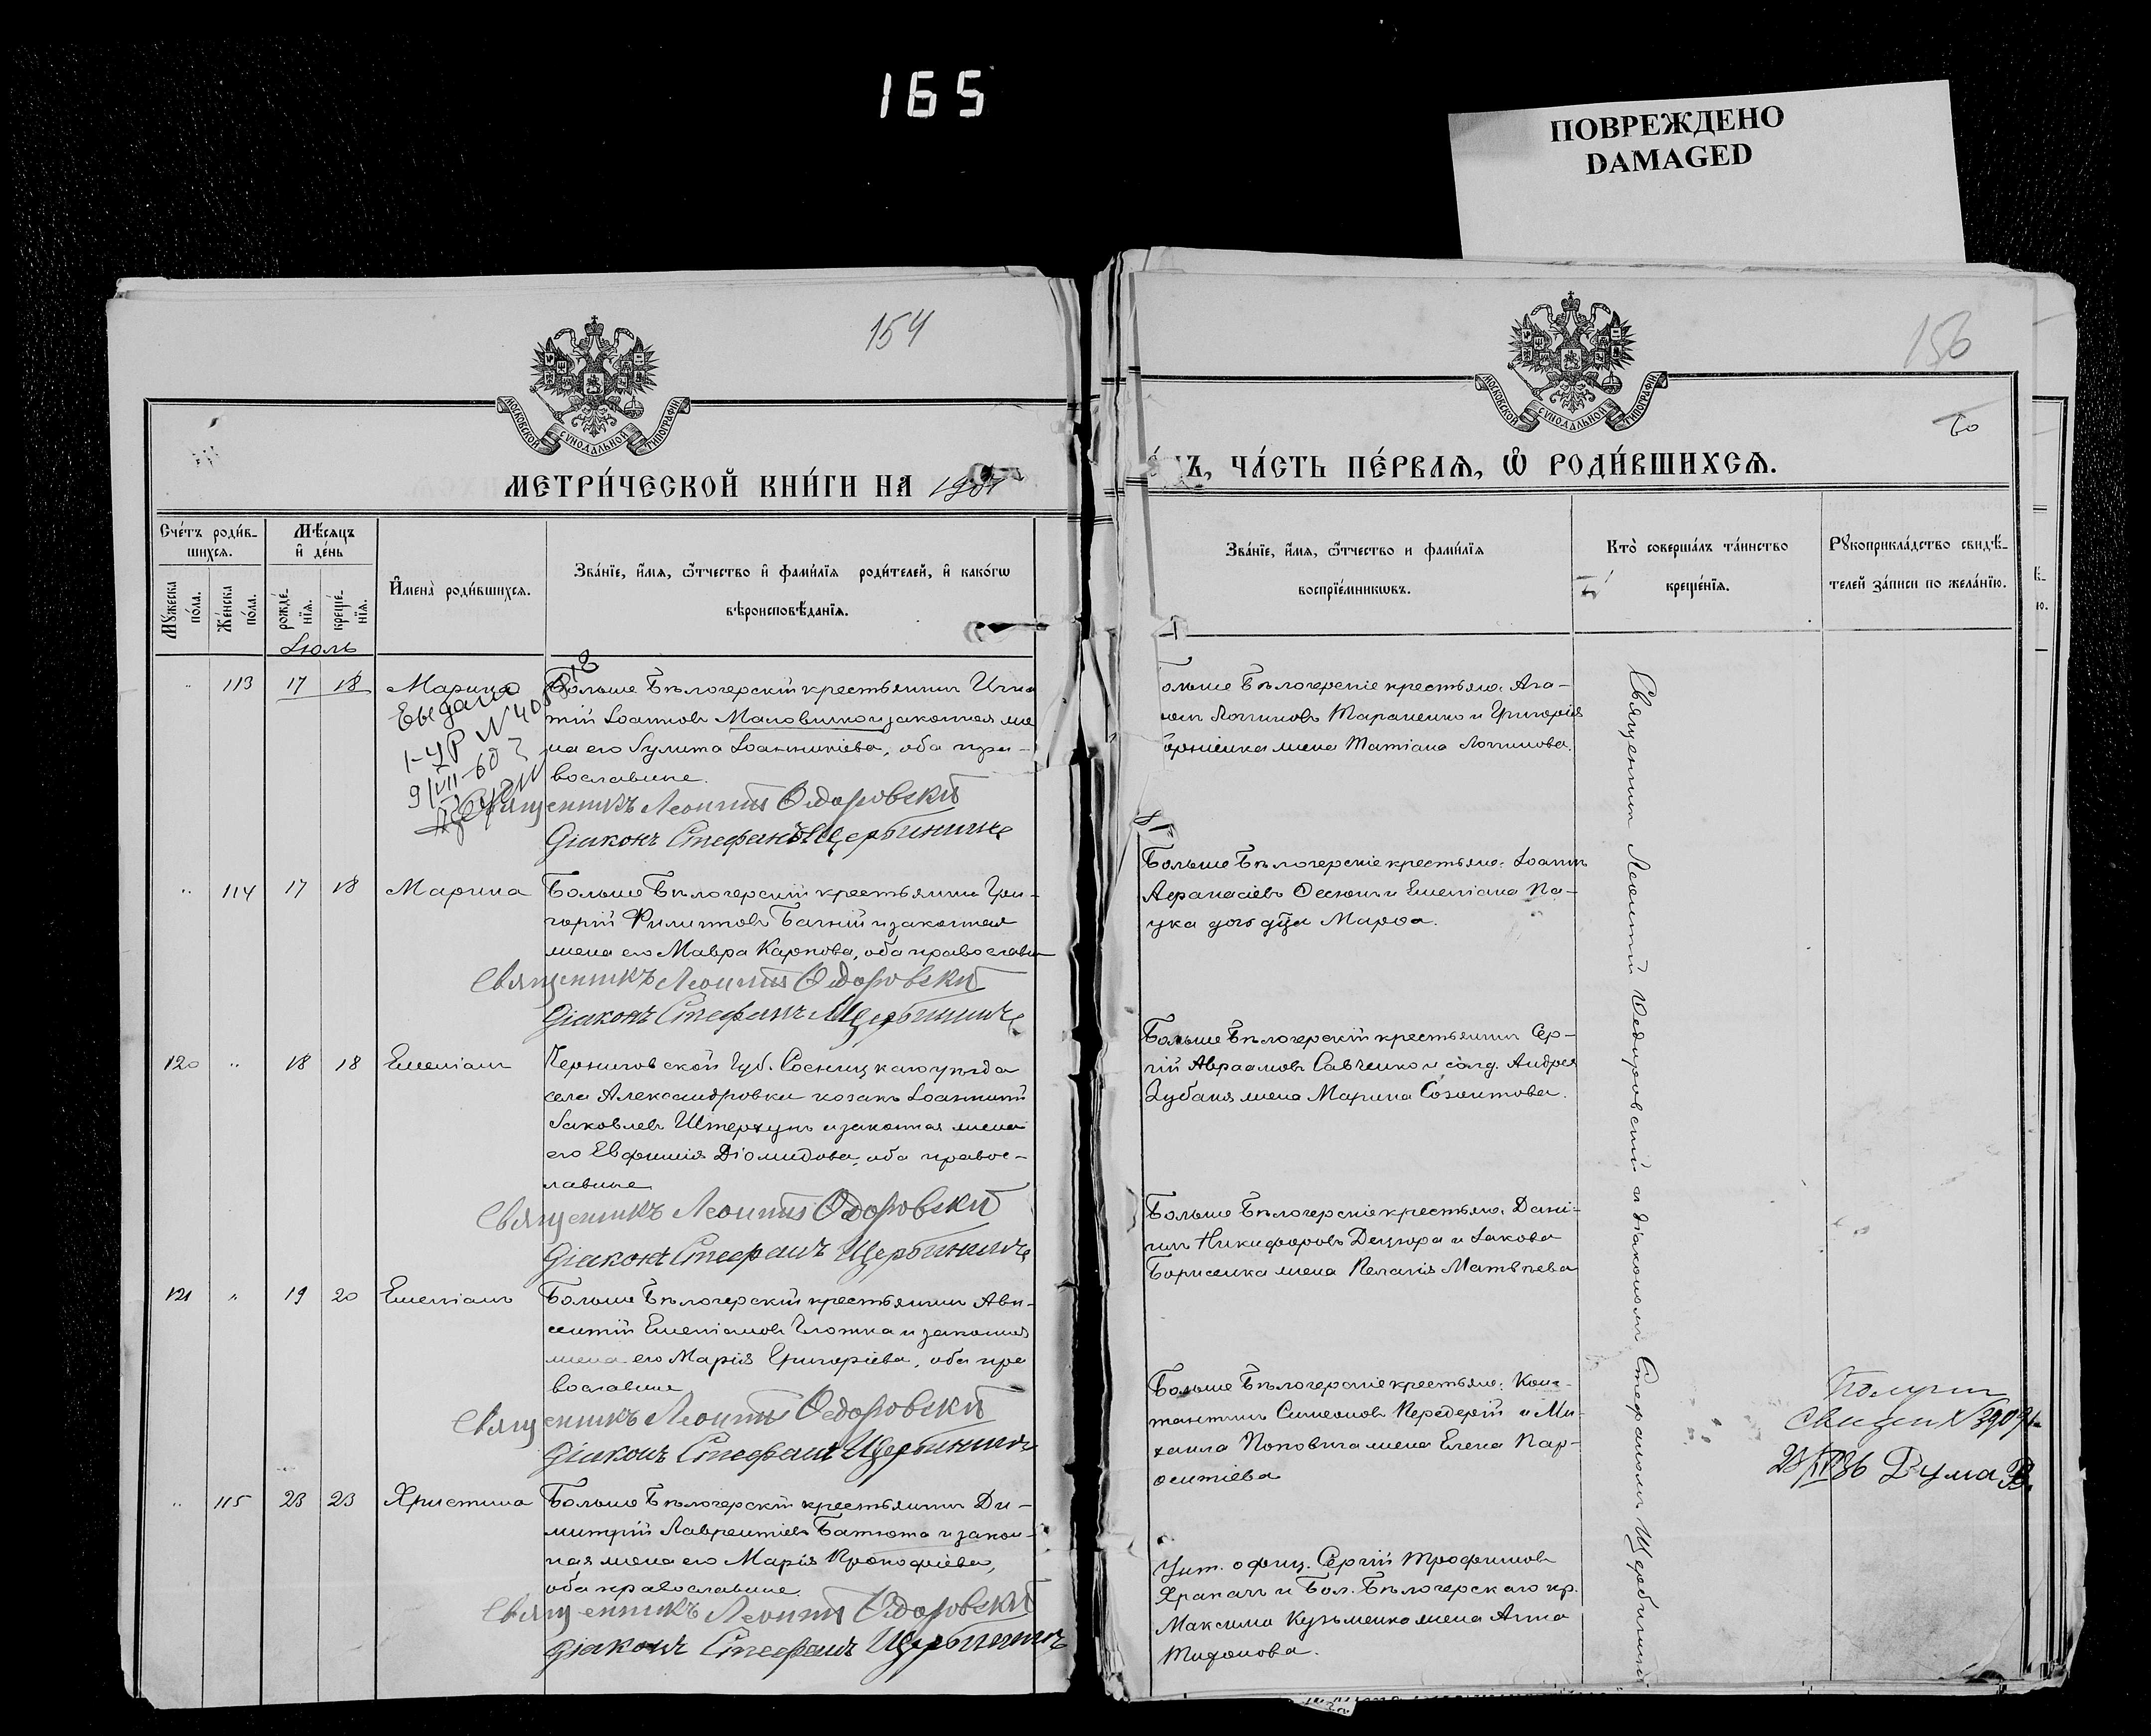 165
ПОВРЕЖДЕНО
DAMAGED
154
МОСКОВСКОЙ СУНОДАЛЬНОЙ ТИПОГРАФІИ
МЕТРИ́ЧЕСКОЙ КНИ́ГИ НА 1901
Сче́тъ роди́в-
шихсѧ.
Мѣ́сѧцъ
и҆ де́нь
Мꙋ́жеска по́ла.
Же́нска по́ла.
рожде́-
нїѧ.
креще́-
нїѧ.
И҆мена̀ роди́вшихсѧ.
Зва́нїе, и҆́мѧ, ѻ҆́тчество и҆ фами́лїѧ роди́телей, и҆ како́гѡ
вѣроисповѣ́данїѧ.
Іюль
113 17 18 Марина
Больше Бѣлозерскій крестьянинъ Игна
тій Іоанновъ Маловичко и законная же
на его Іулита Іоанникіева, оба пра-
вославные.
9/VII-60
Священникъ Леонтій Ѳедоровскій
Діаконъ Стефанъ Щербининъ
114 17 18 Марина
Больше Бѣлозерскій крестьянинъ Гри-
горій Филипповъ Багній и законная
жена его Мавра Карпова, оба православн
Священникъ Леонтій Ѳедоровскій
Діаконъ Стефанъ Щербининъ
120 " 18 18 Емеліанъ
Черниговской Губ. Сосницкаго уѣзда
села Александровки козакъ Іоанникій
Іаковлевъ Штерхунъ и законная жена
его Евфимія Діомидова, оба правос-
лавные
Священникъ Леонтій Ѳедоровскій
Діаконъ Стефанъ Щербининъ
121 " 19 20 Емеліанъ
Больше Бѣлозерскій крестьянинъ Авк-
сентій Емеліановъ Глотка и законная
жена его Марія Григоріева, оба пра
вославные
Священникъ Леонтій Ѳедоровскій
Діаконъ Стефанъ Щербининъ
115 23 23 Христина
Больше Бѣлозерскій крестьянинъ Ди-
митрій Лаврентіевъ Батюта и закон-
ная жена его Марія Прокофіева,
оба православные.
Священникъ Леонтій Ѳедоровскій
Діаконъ Стефанъ Щербининъ
156
МОСКОВСКОЙ СУНОДАЛЬНОЙ ТИПОГРАФІИ
ЧА́СТЬ ПЕ́РВАѦ, Ѡ҆ РОДИ́ВШИХСѦ.
Зва́нїе, и҆́мѧ, ѻ҆́тчество и фами́лїѧ
воспрїе́мникѡвъ.
Кто̀ соверша́лъ та́инство
креще́нїѧ.
Рꙋкоприкла́дство свидѣ́-
телей за́писи по жела́нїю.
ольше Бѣлозерскіе крестьяне: Ага-
Логгиновъ Тараненко и Григорія
жена Татіана Логгинова.
Больше Бѣлозерскіе крестьяне: Іоаннъ
Аѳанасіевъ и Емеліана Па-
ука дочь дѣв. Марѳа.
Больше Бѣлозерскій крестьянинъ Сер-
гій Авраамовъ Савченко и солд. Андрея
Зубаня жена Марина Созонтова.
Больше Бѣлозерскіе крестьяне: Дані-
илъ Никифоровъ Децюра и Іакова
Борисенка жена Пелагія Матѳеева
Больше Бѣлозерскіе крестьяне: Конс-
тантинъ Симеоновъ Передерій и Ми-
хаила Поповича жена Елена Пар-
ѳентіева
Унт. офиц. Сергій Трофимовъ
Храпачъ и Бол. Бѣлозерскаго кр.
Максима Кузьменко жена Анна
Тихонова.
Священникъ Леонтій Ѳедоровскій и діаконъ Стефанъ Щербининъ
Получил
Дума В.